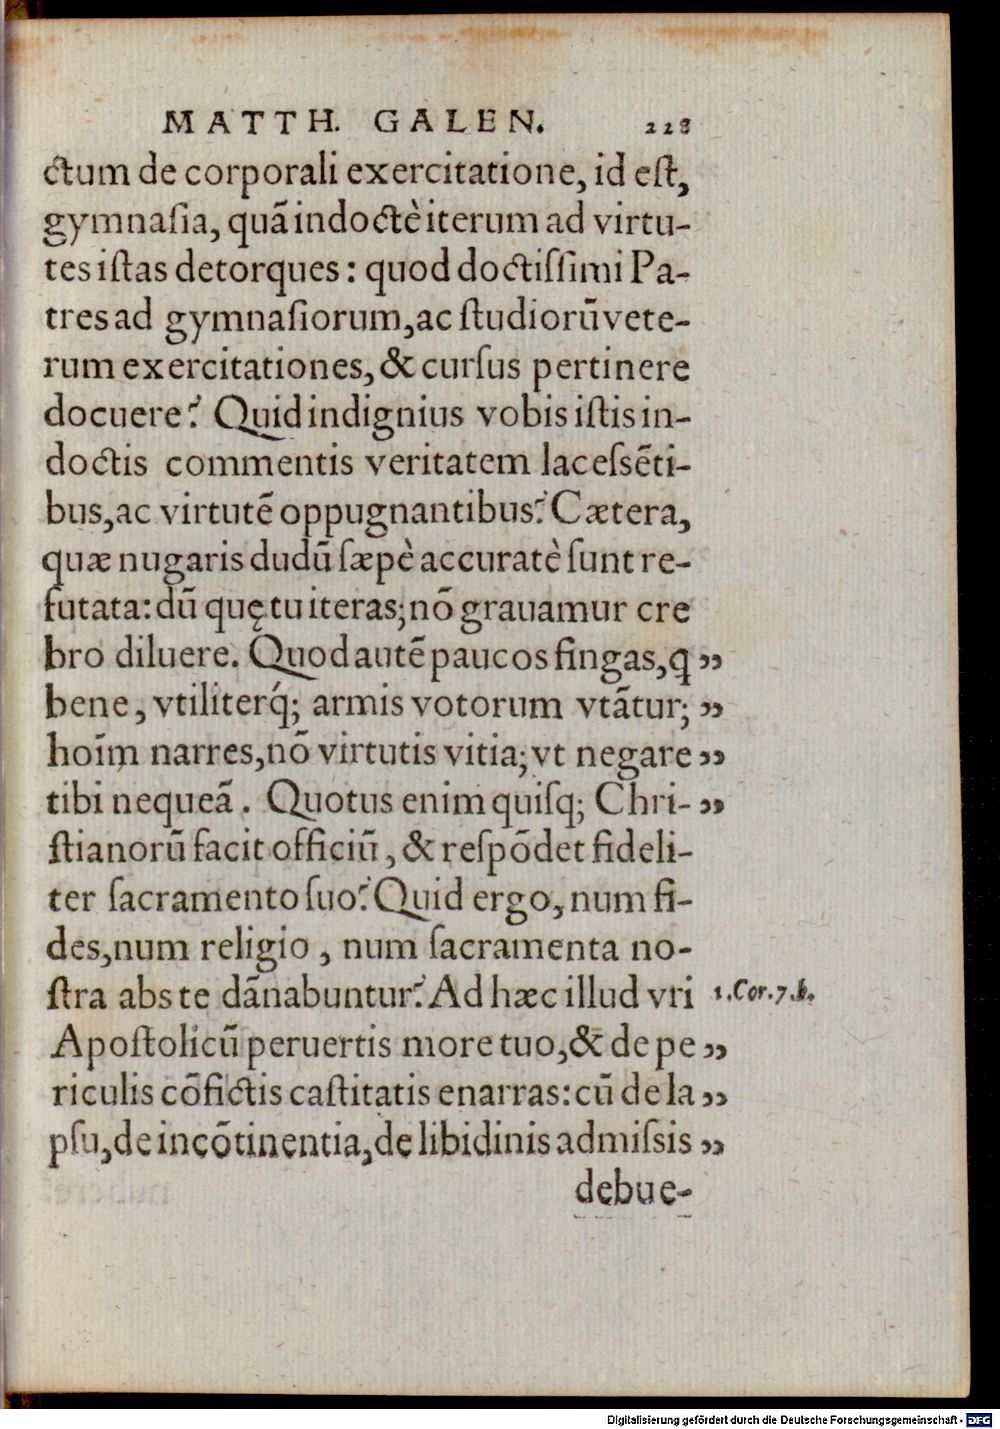 MATTH. GALEN. 228
ctum de corporali exercitatione, id eſt,
gymnaſia, quã indoctè iterum ad virtu-
tes iſtas detorques: quod doctiſſimi Pa-
tres ad gymnaſiorum, ac ſtudiorũ vete-
rum exercitationes, & curſus pertinere
docuere? Quid indignius vobis iſtis in-
doctis commentis veritatem laceſsẽti-
bus, ac virtutẽ oppugnantibus? Cætera,
quæ nugaris dudũ ſæpè accuratè ſunt re-
futata: dũ quę tu iteras; nõ grauamur cre
bro diluere. Quod autẽ paucos fingas, q ”
bene, vtiliterq́; armis votorum vtãtur; ”
hoĩm narres, nõ virtutis vitia; vt negare ”
tibi nequeã. Quotus enim quiſq; Chri- ”
ſtianorũ facit officiũ, & reſpõdet fideli-
ter ſacramento ſuo? Quid ergo, num fi-
des, num religio, num ſacramenta no-
ſtra abs te dãnabuntur? Ad hæc illud vri 1.Cor.7.b.
Apoſtolicũ peruertis more tuo, & de pe ”
riculis cõfictis caſtitatis enarras: cũ de la ”
pſu, de incõtinentia, de libidinis admiſsis ”
debue-
Digitalisierung gefördert durch die Deutsche Forschungsgemeinschaft - DFG